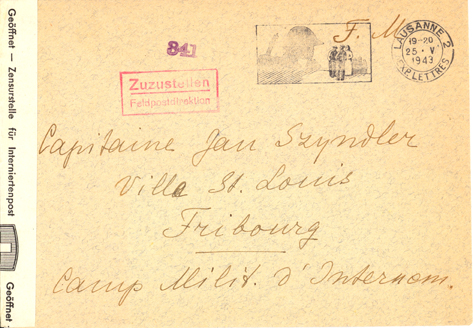 Geöffnet — Zensurstelle für Interniertenpost
Geöffnet
841
F. M.
LAUSANNE 2
19-20
25. V
1943
EXP. LETTRES
Zuzustellen
Feldpostdirektion
Capitaine Jan Szyndler
Villa St. Louis
Fribourg
Camp Milit. d'Internem.